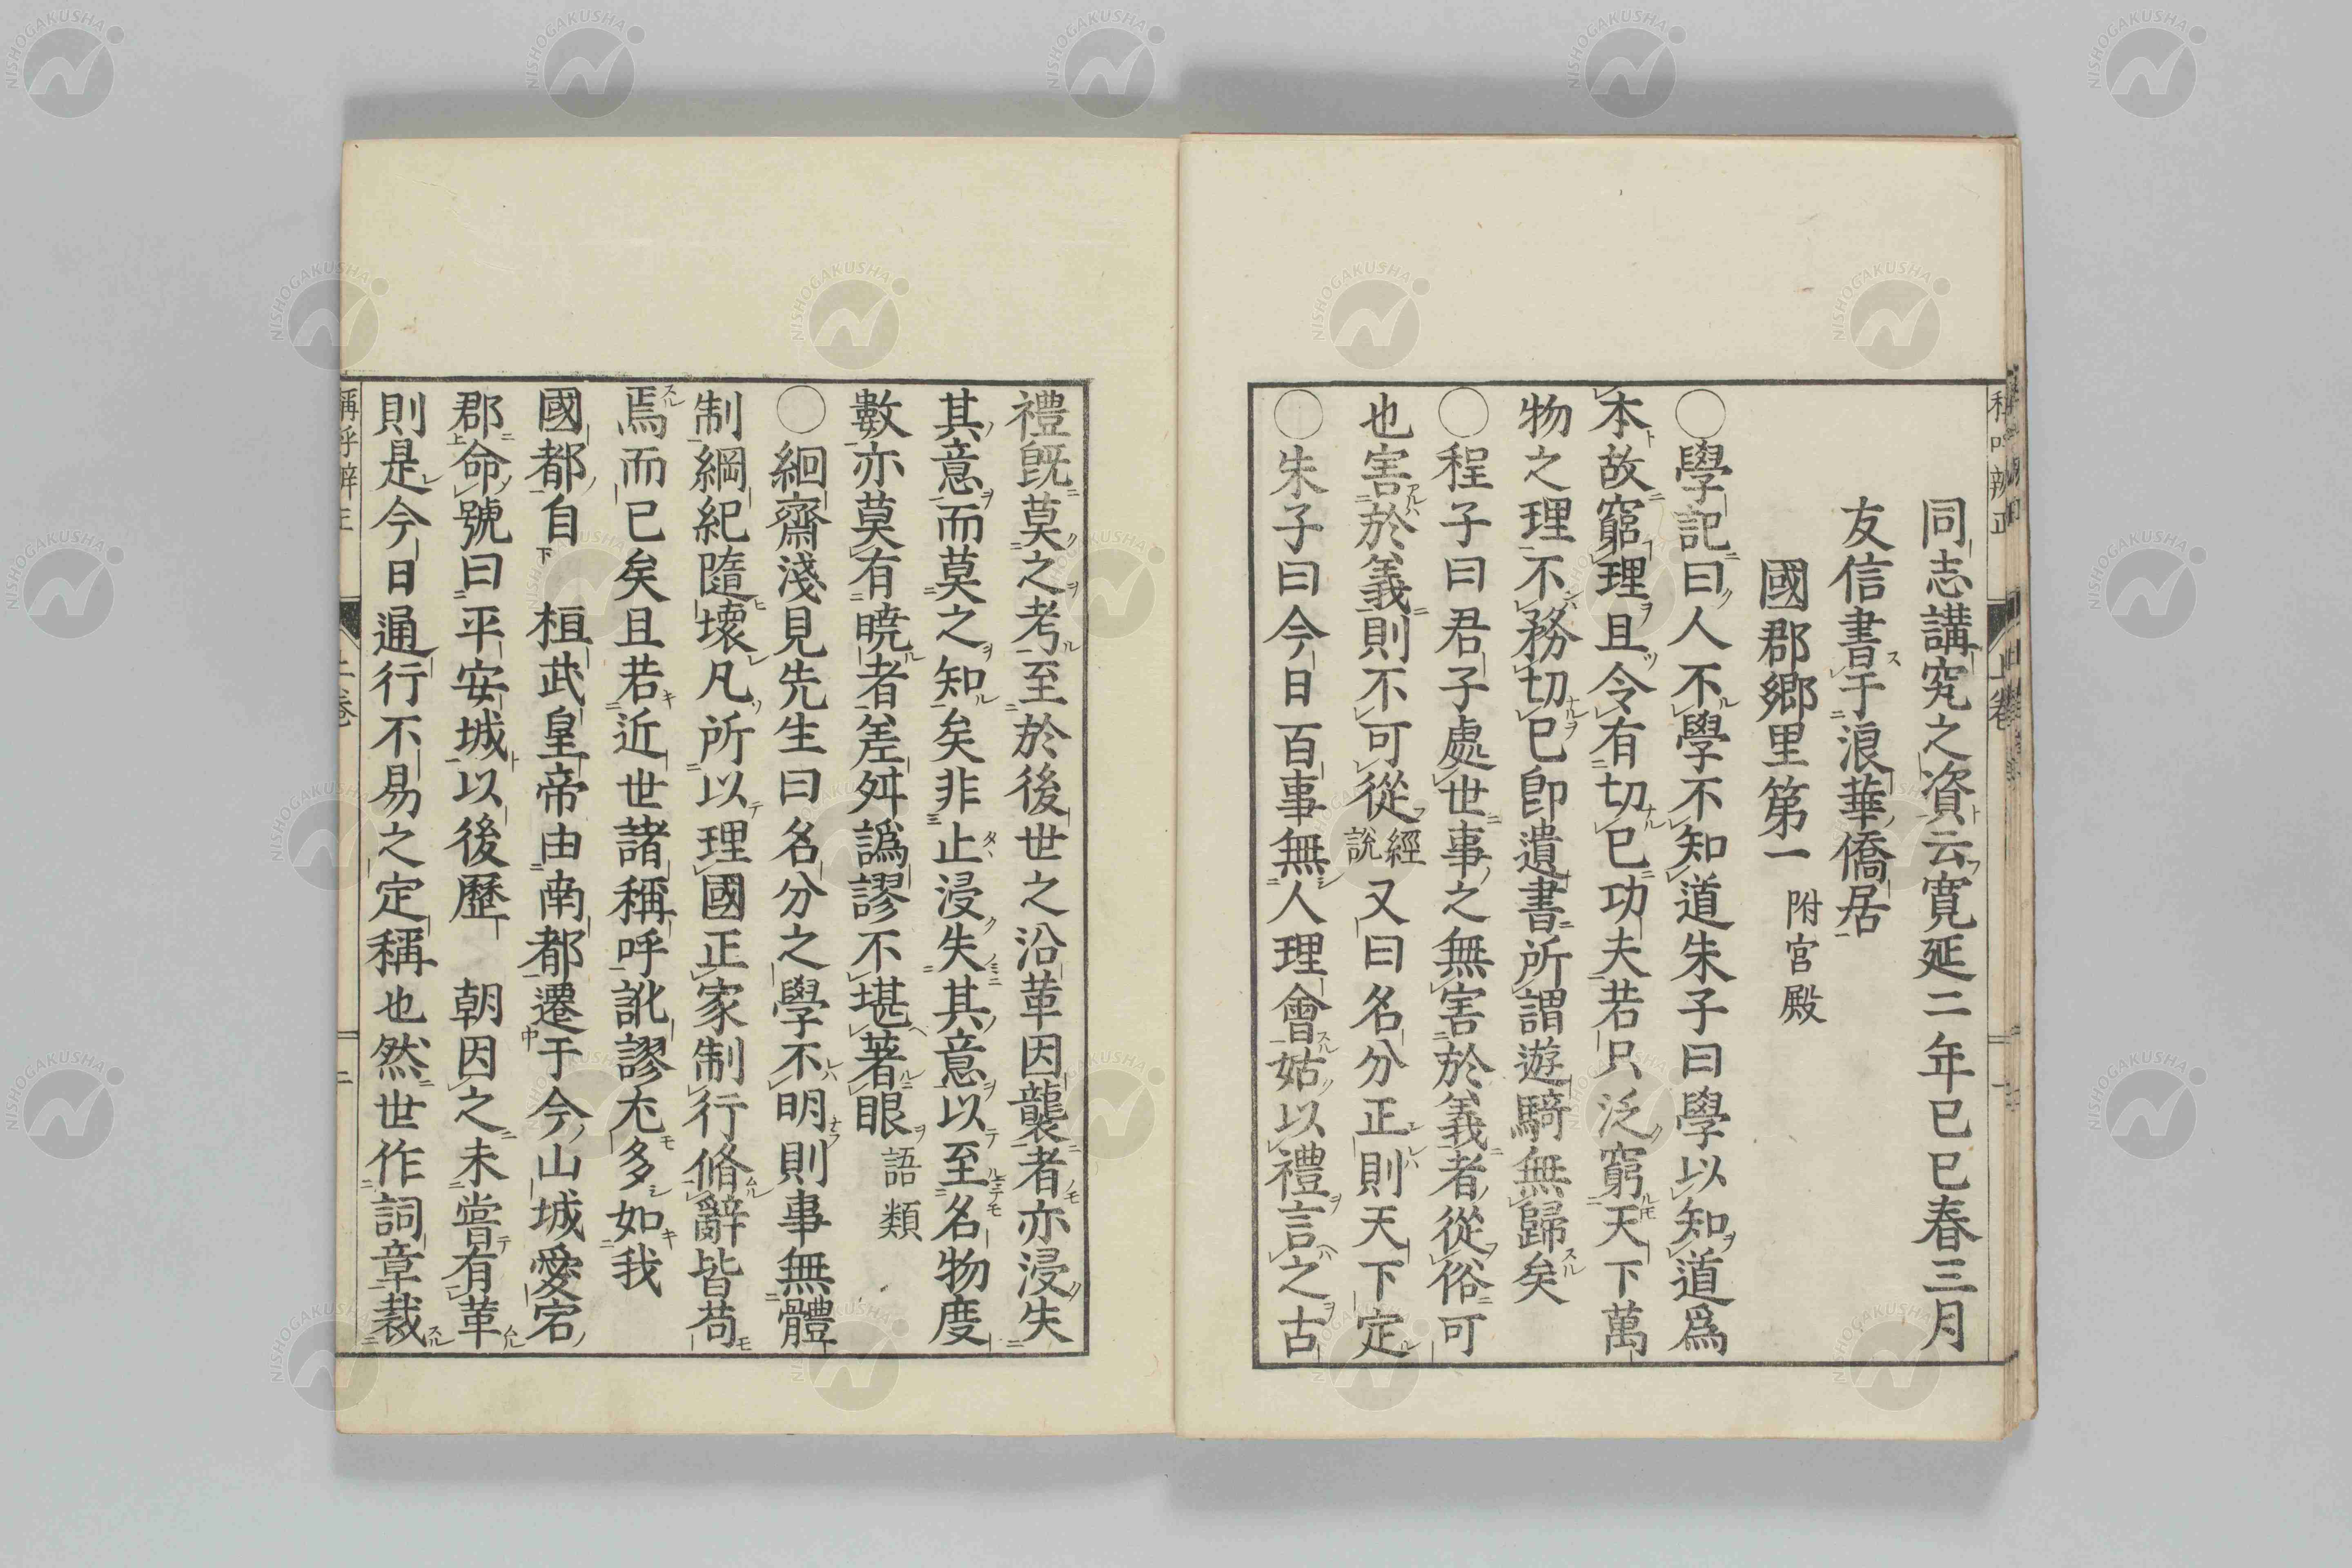 同志講究之資云寬延二年己巳春三月
友信書于浪華僑居
國郡鄉里第一 附宮殿
〇學記曰人不學不知道朱子曰學以知道爲
本故窮理且令有切己功夫若只泛窮天下萬
物之理不務切己卽遺書所謂遊騎無歸矣
〇程子曰君子處世事之無害於義者從俗可
也害於義則不可從 經說 又曰名分正則天下定
〇朱子曰今日百事無人理會姑以禮言之古
禮旣莫之考至於後世之沿革因襲者亦浸失
其意而莫之知矣非止浸失其意以至名物度
數亦莫有曉者差舛譌謬不堪著眼 語類
〇絅齋淺見先生曰名分之學不明則事無體
制綱紀隨壞凡所以理國正家制行脩辭皆苟
焉而已矣且若近世諸稱呼訛謬尤多如我
國都自 桓武皇帝由南都遷于今山城愛宕
郡命號曰平安城以後歷 朝因之未嘗有革
則是今日通行不易之定稱也然世作詞章裁
稱呼辨正 上卷 二
NISHOGAKUSHA